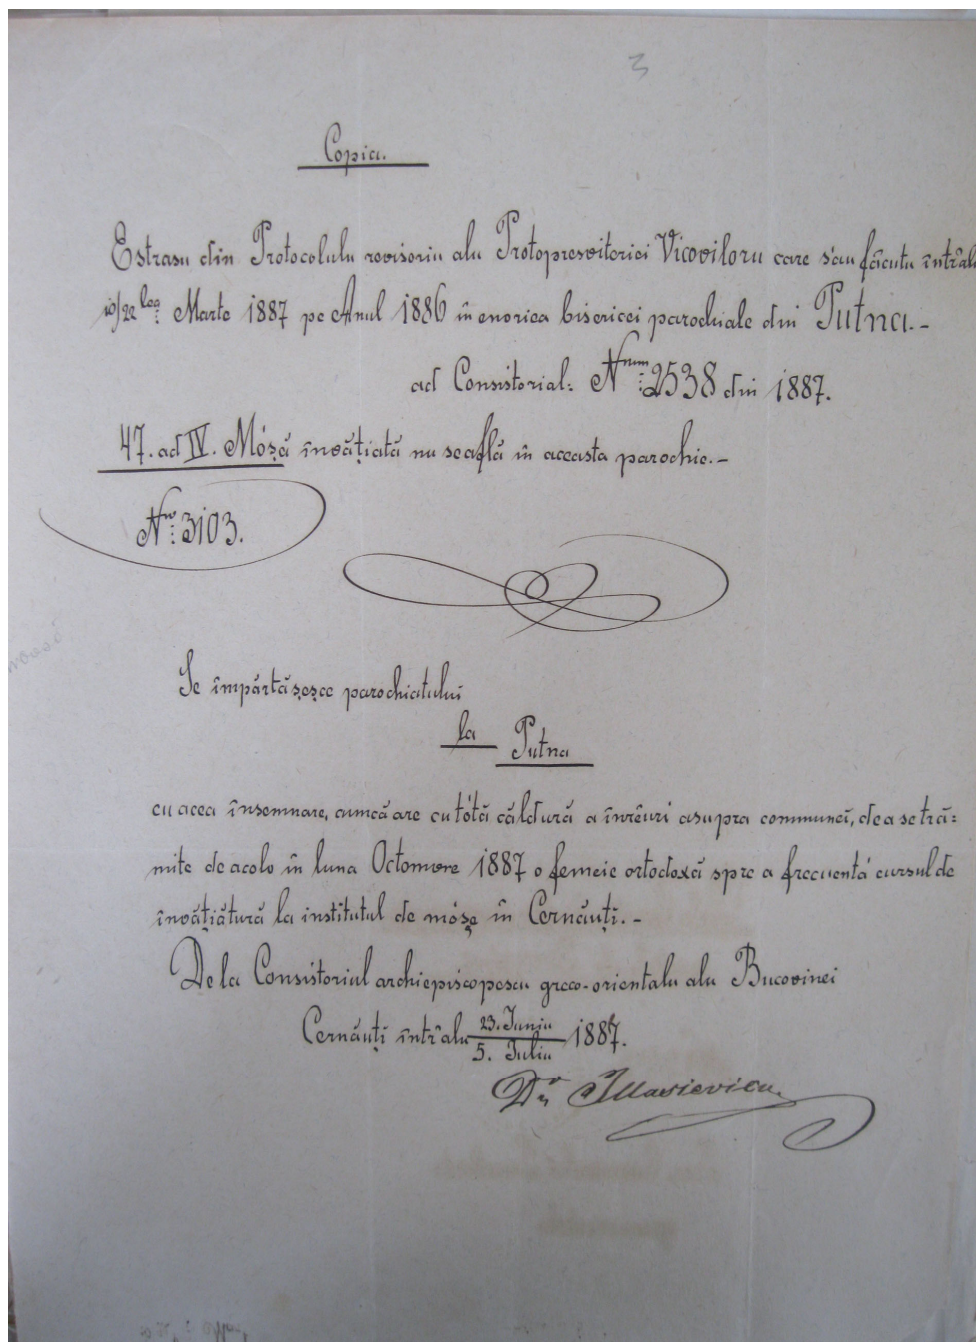 3
Copia.
Estrasu din Protocolulu revisoriu alu Protopresviteriei Vicoviloru care s'au făcutu într'alu
10/22 lea Marte 1887 pe Anul 1886 în enoriea bisericei parochiale din Putna.-
ad Consistorial: Nrum: 2538 din 1887.
47. ad IV. Móșă învățiată nu se află în aceasta parochie.-
Nro: 3103.
Se împărtășeșce parochiatului
la Putna
cu acea însemnare, cumcă are cu tótă căldură a înrêuri asupra communei, de a se tră=
mite de acolo în luna Octomvre 1887 o femeie ortodoxă spre a frecuentá cursul de
învățiătură la institutul de móșe în Cernăuți.-
De la Consistoriul archiepiscopescu greco-orientalu alu Bucovinei
Cernăuți într'alu 23. Juniu / 5. Juliu 1887.